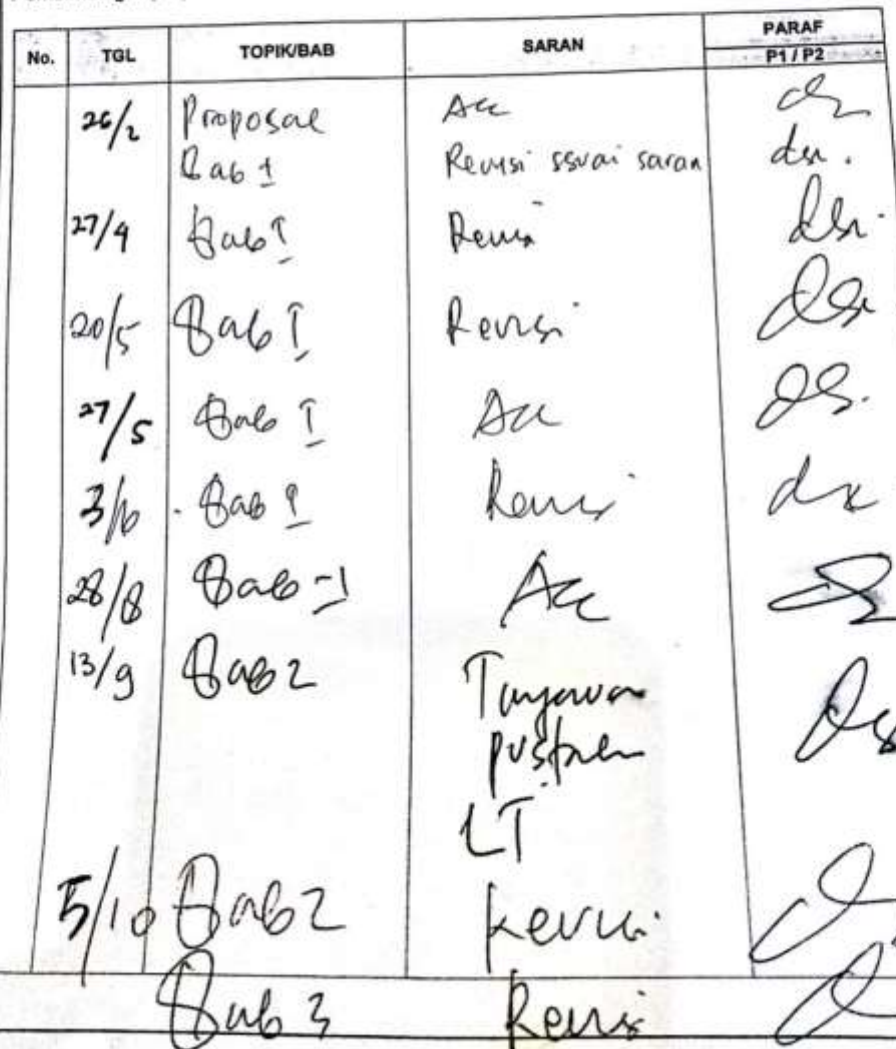 No. TGL TOPIK/BAB SARAN PARAF
P1 / P2
26/2 Proposal Acc
Bab 1 Revisi ssuai saran
27/4 Bab I Revisi
20/5 Bab I Revisi
27/5 Bab I Acc
3/6 Bab I Revisi
28/8 Bab I Acc
13/9 Bab 2 Tinjauan
pustaka
LT
5/10 Bab 2 Revisi
Bab 3 Revisi